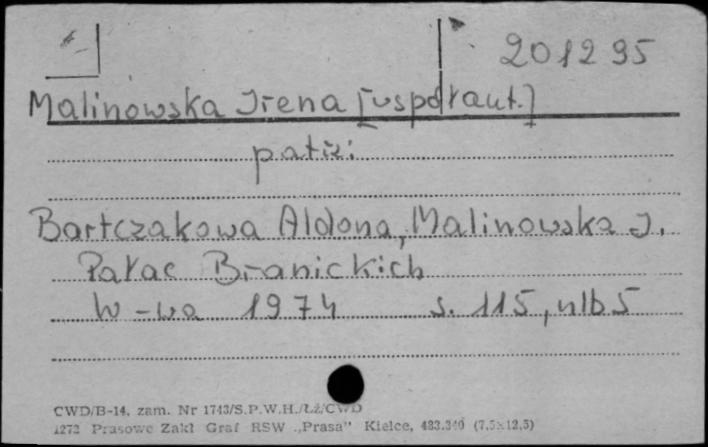 201295
Malinowska Irena [współaut.]
patrz:
Bartczakowa Aldona, Malinowska J.
Pałac Branickich
W-wa 1974 s. 115, nlb 5
CWD/B-14, zam. Nr 1743/S.P.W.H./ŁŻ/CWD
1272 Prasowe Zakł Graf RSW „Prasa" Kielce, 483.340 (7,5×12,5)